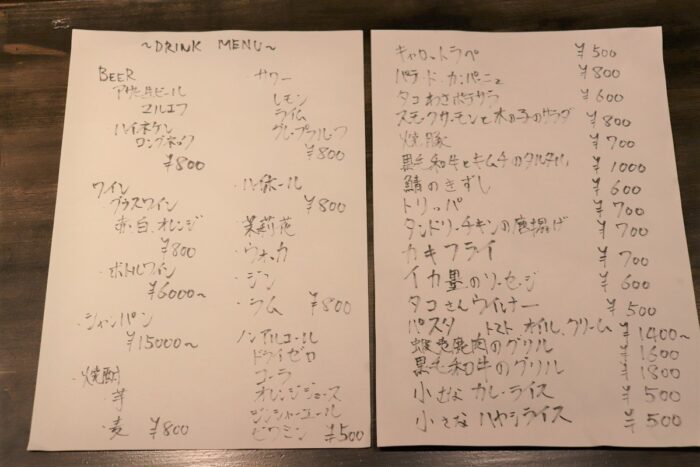 ~DRINK MENU~
BEER
アサヒ生ビール
マルエフ
・ハイネケン
ロングネック
¥800
ワイン
グラスワイン
赤・白・オレンジ
¥800
・ボトルワイン
¥6000~
・シャンパン
¥15000~
・焼酎
芋
・麦 ¥800
・サワー
レモン
ライム
グレープフルーツ
¥800
・ハイボール
¥800
・茉莉花
・ウォッカ
・ジン
・ラム ¥800
ノンアルコール
ドライゼロ
コーラ
オレンジジュース
ジンジャーエール
¥500
キャロットラペ ¥500
パテ・ド・カンパーニュ ¥800
タコわさポテサラ ¥600
スモークサーモンと木の子のサラダ ¥800
焼豚 ¥700
黒毛和牛とキムチのタルタル ¥1000
鯖のきずし ¥600
トリッパ ¥700
タンドリーチキンの唐揚げ ¥700
カキフライ ¥700
イカ墨のソーセージ ¥600
タコさんウインナー ¥500
パスタ トマト、オイル、クリーム ¥1400~
蝦夷鹿肉のグリル ¥1600
黒毛和牛のグリル ¥1800
小さなカレーライス ¥500
小さなハヤシライス ¥500